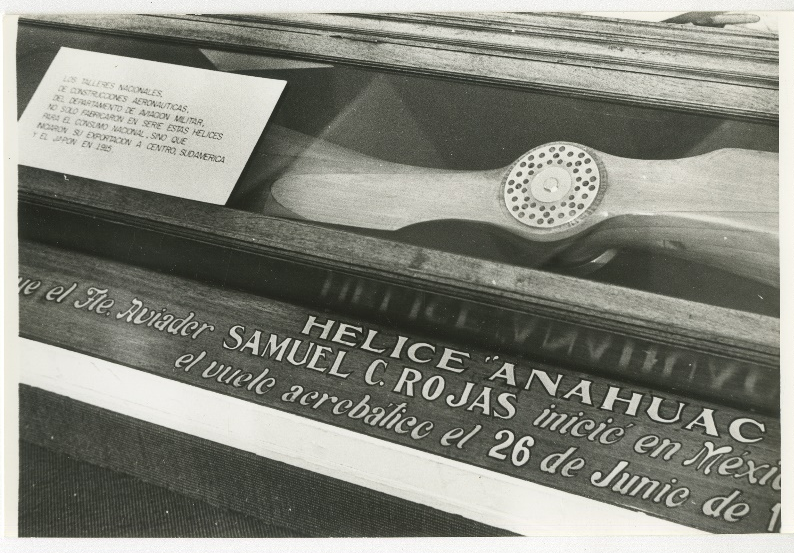 LOS TALLERES NACIONALES,
DE CONSTRUCCIONES AERONAUTICAS,
DEL DEPARTAMENTO DE AVIACION MILITAR,
NO SOLO FABRICARON EN SERIE ESTAS HELICES
PARA EL CONSUMO NACIONAL, SINO QUE
INICIARON SU EXPORTACION A CENTRO, SUDAMERICA
Y EL JAPON EN 1915
HELICE "ANAHUAC
ue el Tte. Aviador SAMUEL C. ROJAS inició en Méxic
el vuelo acrobático el 26 de Junio de 1